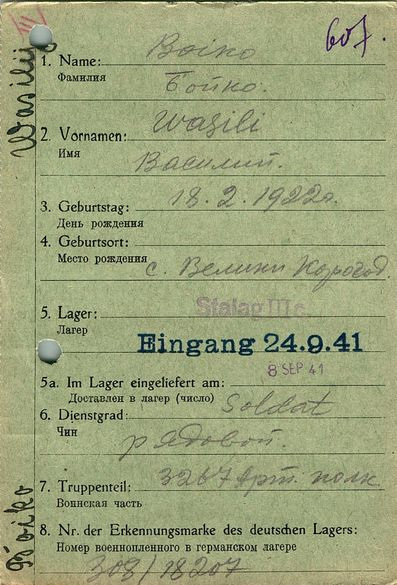 III
607.
Wasilij
1. Name: Boiko
Фамилия Бойко.
2. Vornamen: Wasili
Имя Василий.
3. Geburtstag: 18.2.1922г.
День рождения
4. Geburtsort:
Место рождения с. Велики Корогод
5. Lager: Stalag III
Лагер
Eingang 24.9.41
8 SEP 41
5a. Im Lager eingeliefert am:
Доставлен в лагер (число)
6. Dienstgrad: Soldat
Чин рядовой.
7. Truppenteil: 3267 Арт. полк
Воинская часть
8. Nr. der Erkennungsmarke des deutschen Lagers:
Номер военнопленного в германском лагере
308/18207
Boiko